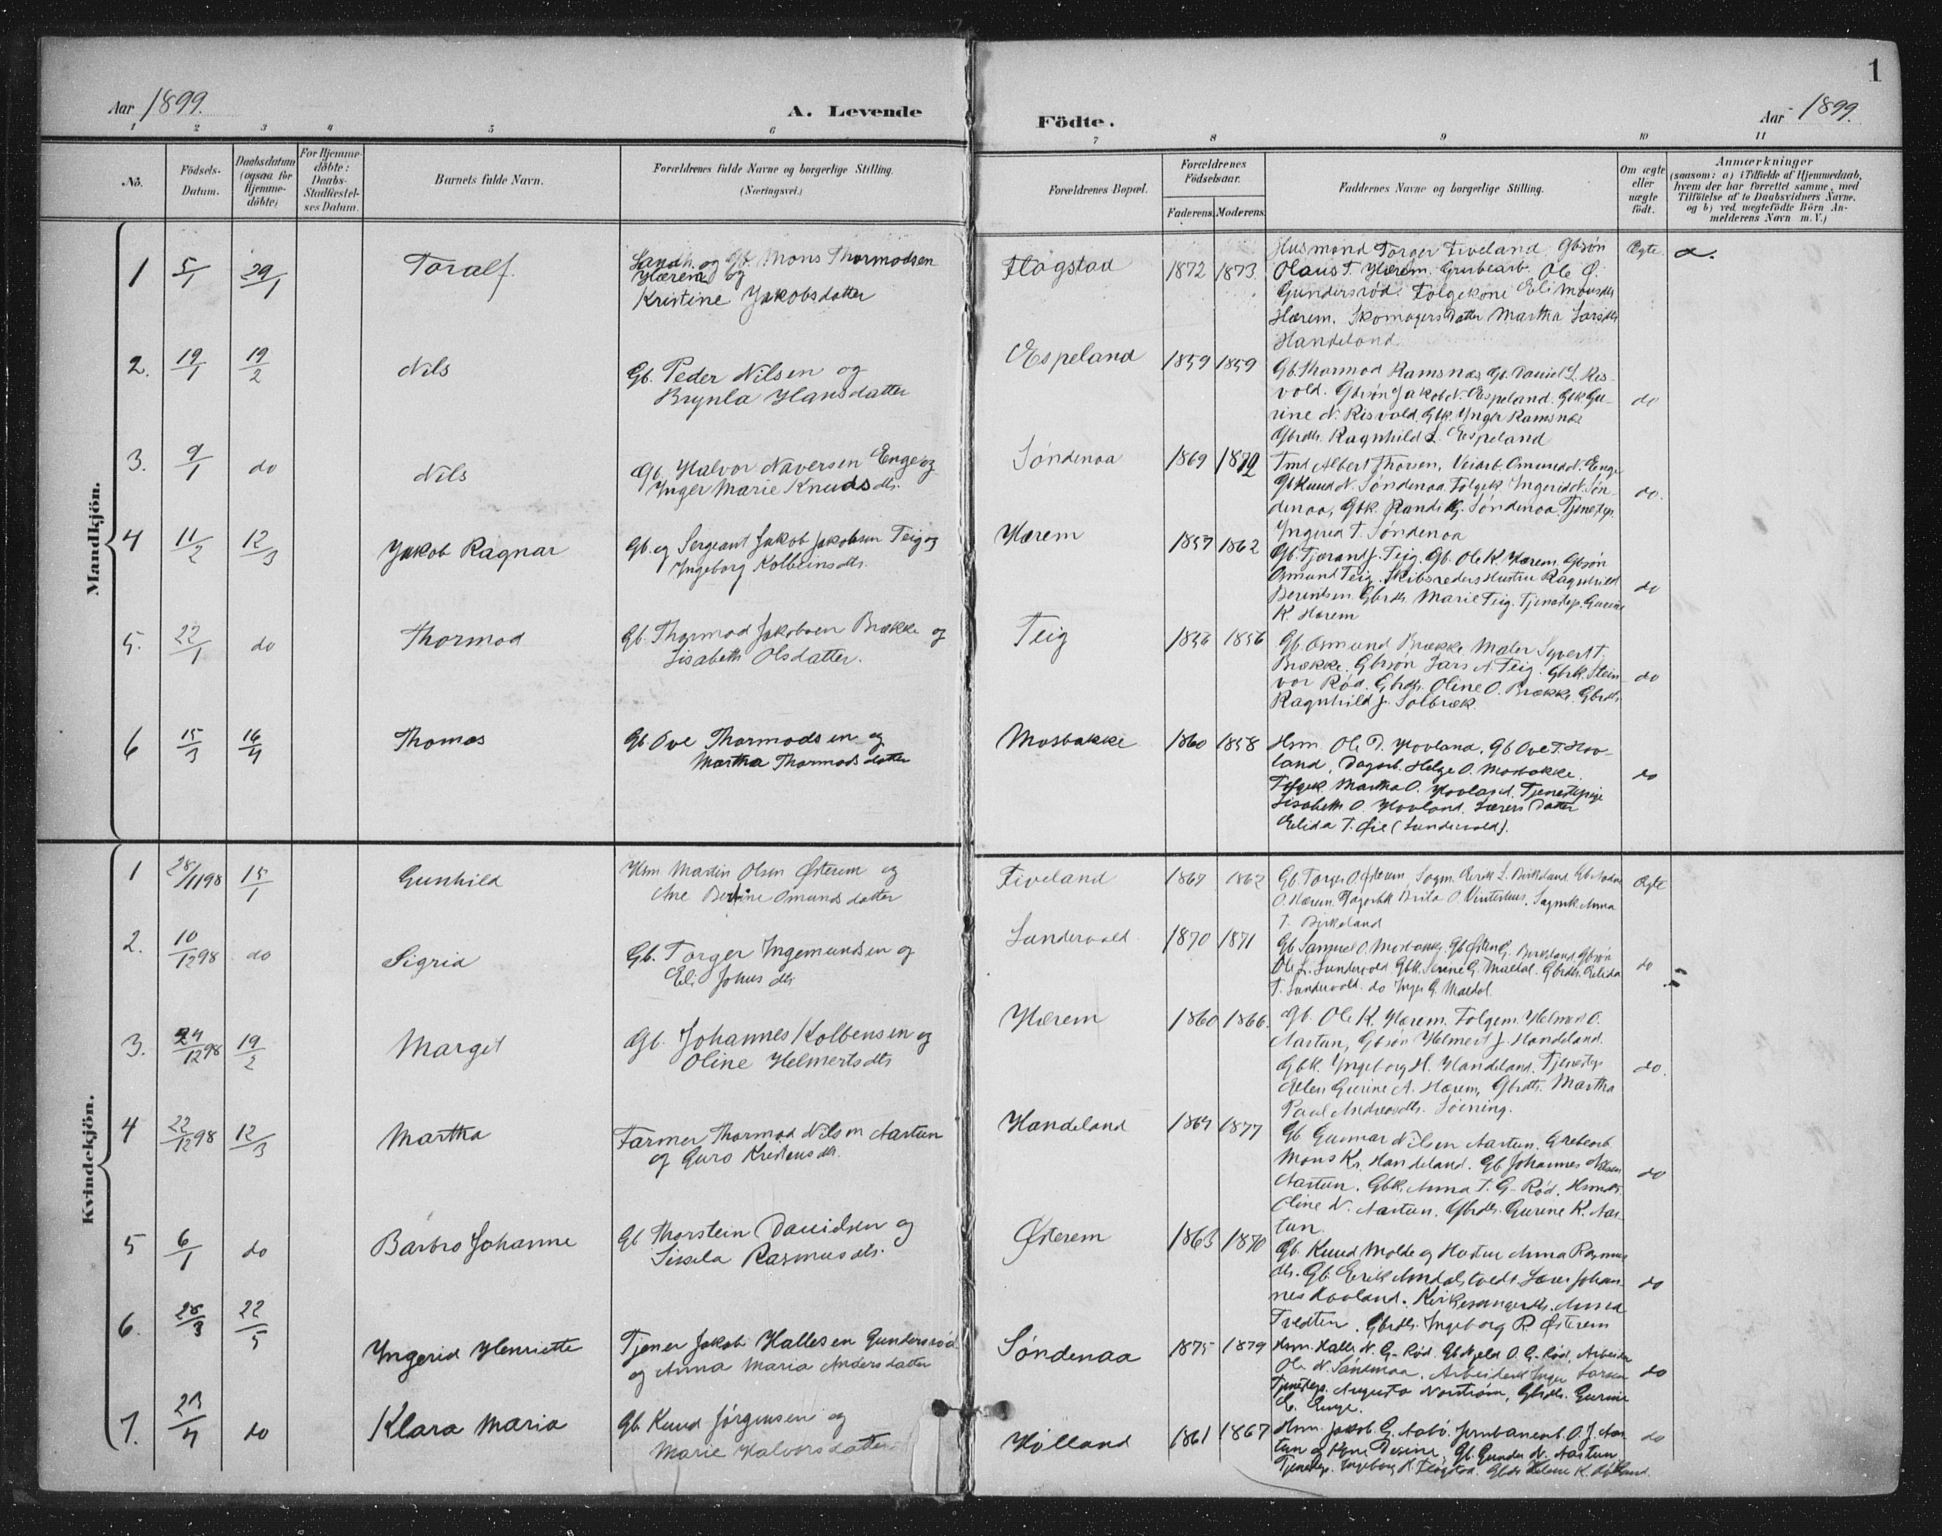 Aar 1899.
A. Levende
Födte.
Aar 1899.
1
1 2 3 4 5 6 7 8 9 10 11
No.
Födsels-
Datum.
Daabsdatum
(ogsaa for
Hjemme-
döbte)
For Hjemme-
döbte:
Daabs-
Stadfæstel-
ses Datum.
Barnets fulde Navn.
Forældrenes fulde Navne og borgerlige Stilling.
(Næringsvei.)
Forældrenes Bopæl.
Forældrenes
Födselsaar.
Faderens. Moderens.
Faddernes Navne og borgerlige Stilling.
Om ægte
eller
uægte
födt.
Anmærkninger
(saasom: a) i Tilfælde af Hjemmedaab,
hvem der har forrettet samme, med
Tilföielse af to Daabsvidners Navne,
og b) ved uægtefödte Börn An-
melderens Navn m. V.)
Mandkjön.
1 5/1 29/1 Toralf.
Landh. og Gb. Mons Thormodsen
Hærem og
Kristine Jakobsdatter
Flogstad 1872 1873
Husmand Torger Fiveland Gbsøn
Olaus T. Hærem. Grubearb. Ole O.
Gundersrød. Folgekone Eli Monsdtr
Hærem. Skomagersdatter Martha Larsdtr
Handeland
Ægte a.
2. 19/1 19/2 Nils
Gb. Peder Nilsen og
Brynla Hansdatter
Espeland 1859 1859
Gb. Thormod Ramsnæs Gb. Daniel L. Ris-
vold. Gbsøn Jakob N. Espeland. Gbk Gu-
rine N. Risvold. Gbk. Inger Ramsnæs
Gbrdtr. Ragnhild L. Espeland
do
3. 9/1 do Nils
Gb. Halvor Naversen Enge og
Inger Marie Knudsdtr.
Søndenaa 1869 1872
Tmd Albert Thorsen, Veiarb. Omund N. Enge
Gb Knud N. Søndenaa. Folgek. Ingerid N. Søn-
denaa, Gbk. Randi G. Søndenaa, Tjenestep.
Ingerid T. Søndenaa
do.
4 11/2 12/3 Jakob Ragnar
Gb. og Sergeant Jakob Jakobsen Teig og
Ingeborg Kolbeinsdtr.
Hærem 1857 1862
Gb. Tjerand J. Teig. Gb. Ole K. Hærem. Gbsøn
Omund Teig. Skibsreders Hustru Ragnhild
Berentsen. Gbrdtr. Marie Teig. Tjenestep. Gurine
K. Hærem
do
5. 22/1 do Thormod
Gb. Thormod Jakobsen Brække og
Lisabeth Olsdatter.
Teig 1856
Gb. Osmund Brække Maler Syvert T.
Brække. Gbsøn Lars N. Teig. Gbrk. Stein-
vor Rød. Gbrdtr. Oline O. Brække. Gbrdtr.
Ragnhild J. Solbræk.
do
6 15/3 16/4 Thomas
Gb Ove Thormodsen og
Martha Thormodsdatter
Mosbakke 1860 1858
Hsm. Ole T. Hovland, Gb Ove T. Hov-
land, Dagarb. Helge O. Mosbakke.
Folgek Martha O. Hovland. Tjenestepige
Lisabeth O. Hovland. Lærers Datter
Elida T. Øie (Sundervold).
do
Kvindekjön.
1 28/1198 15/1 Gunhild
Hsm Martin Olsen Østerem og
Ane Bertine Omundsdatter
Fiveland 1867 1862
Gb. Torger O. Østerem Sogm. Eerik L. Birkeland
O. Hærem. Dagarbk Brita O. Vinterhus, Sagmk Anna
T. Birkeland
Ægte
2. 10/1298 do Sigrid
Gb. Torger Ingemundsen og
Eli Johnsdtr
Sundervold 1870 1871
Gb Samuel O. Mosbakke, Gb Østen G. Birkeland Gbsøn
Ole L. Sundervold Gbk. Sirene G. Maldal. Gbrdtr. Eelida
T. Sundervold. do Inger G. Maldal.
do
3. 24/1298 19/2 Margit
Gb. Johannes Kolbensen og
Oline Helmertsdtr
Hærem 1860 1866.
Gb. Ole K. Hærem. Folgem. Helmert O.
Aartun, Gbsøn Helmert J. Handeland.
Gbk. Ingeborg H. Handeland. Tjenestep
Helen Gurine A. Hærem, Gbrdtr. Martha
do.
4 22/1298 12/3 Martha
Farmer Thormod Nilsen Aartun
og Guro Kristensdtr.
Handeland 1869 1877
Gb Gunnar Nilsen Aartun, Grubearb
Mons Kr. Handeland. Gb Johannes Nilsen
Aartun. Gbk. Anna T. G-Rød, Hsmdtr.
Oline N. Aartun. Gbrdtr. Gurine K. Aar-
tun.
do
5 6/1 do Barbro Johanne
Gb Thorstein Davidsen og
Sissela Rasmusdtr.
Østerem 1863 1870
Gb. Knud Molde og Hustru Anna Rasmus
dtr. Gb. Eerik Amdalstvedt Lærer Johan-
nes Hovland. Kirkesangerdtr. Anna
Tvedten. Gbrdtr. Ingeborg R. Østerem
do
6. 28/3 22/5 Ingerid Henriette
Tjener Jakob Hallesen Gundersrød
og Anna Maria Andersdatter
Søndenaa 1875 1879
Hsm. Halle N. G-Rød. Gb Njeld O. G-Rød. Arbeider
Ole N. Søndenaa. Arbeidersk Inger Larsen
Tjenestep. Augusta Norstrøm, Gbrdtr. Gurine
E. Enge.
do
7. 23/4 do Klara Maria
Gb. Knud Jörgensen og
Marie Halvorsdatter
Hølland 1861 1867
Hsm. Jakob G. Aabø. Jernbanearb. O. J. Aar-
tun og Kone Desine, Gb. Gunder N. Aartun
Tjenestep. Ingeborg K. Flogstad. Gbdtr Helene K. Hølland.
do